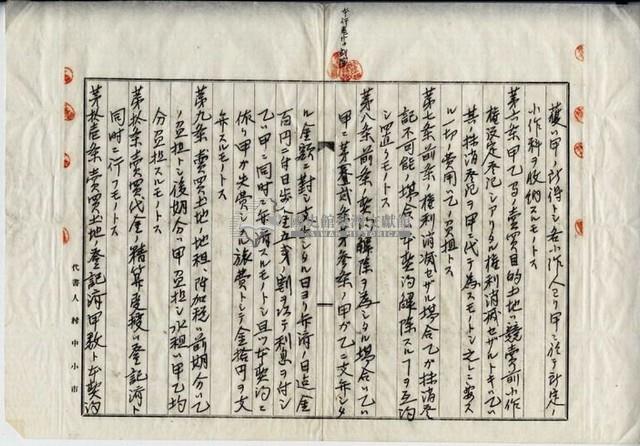 獲ハ甲ノ所得トシ各小作人ヨリ甲ニ於テ計定ノ
小作料ヲ收納スルモノトス
第六条甲乙間ノ賣買目的土地ハ競賣前小作
権設定登記シアリタル権利消滅セザルトキハ乙ハ
其ノ抹消登記ヲ甲ニ代テ為スモノトシ之レニ要ス
ル一切ノ費用ハ乙ノ負担トス
第七条前条ノ権利消滅セザル場合乙カ抹消登
記不可能ノ場合ハ本契約解除スルコトヲ互約
シ置クモノトス
第八条前条ノ契約解除ヲ為シタル場合ハ乙ハ
甲ニ第壹貳条及第参条ノ甲カ乙ニ支弁シタ
ル金額ニ對シ支弁シタル日ヨリ弁済ノ日迄金
百円ニ付日歩金五銭ノ割ヲ以テ利息ヲ付シ
乙ハ甲ニ同時ニ弁済スルモノトシ且ツ本契約ニ
依リ甲カ失費シタル旅費トシテ金拾円ヲ支
弁スルモノトス
第九条賣買土地ノ地租、附加税ハ前期分ハ乙
ノ負担トシ後期分ハ甲ノ負担トシ水租ハ甲乙均
分負担スルモノトス
第拾条賣買代金ノ精算受授ハ登記済ト
同時ニ行フモノトス
第拾壱条賣買土地ノ登記済甲敷ト本契約
代書人村中小市